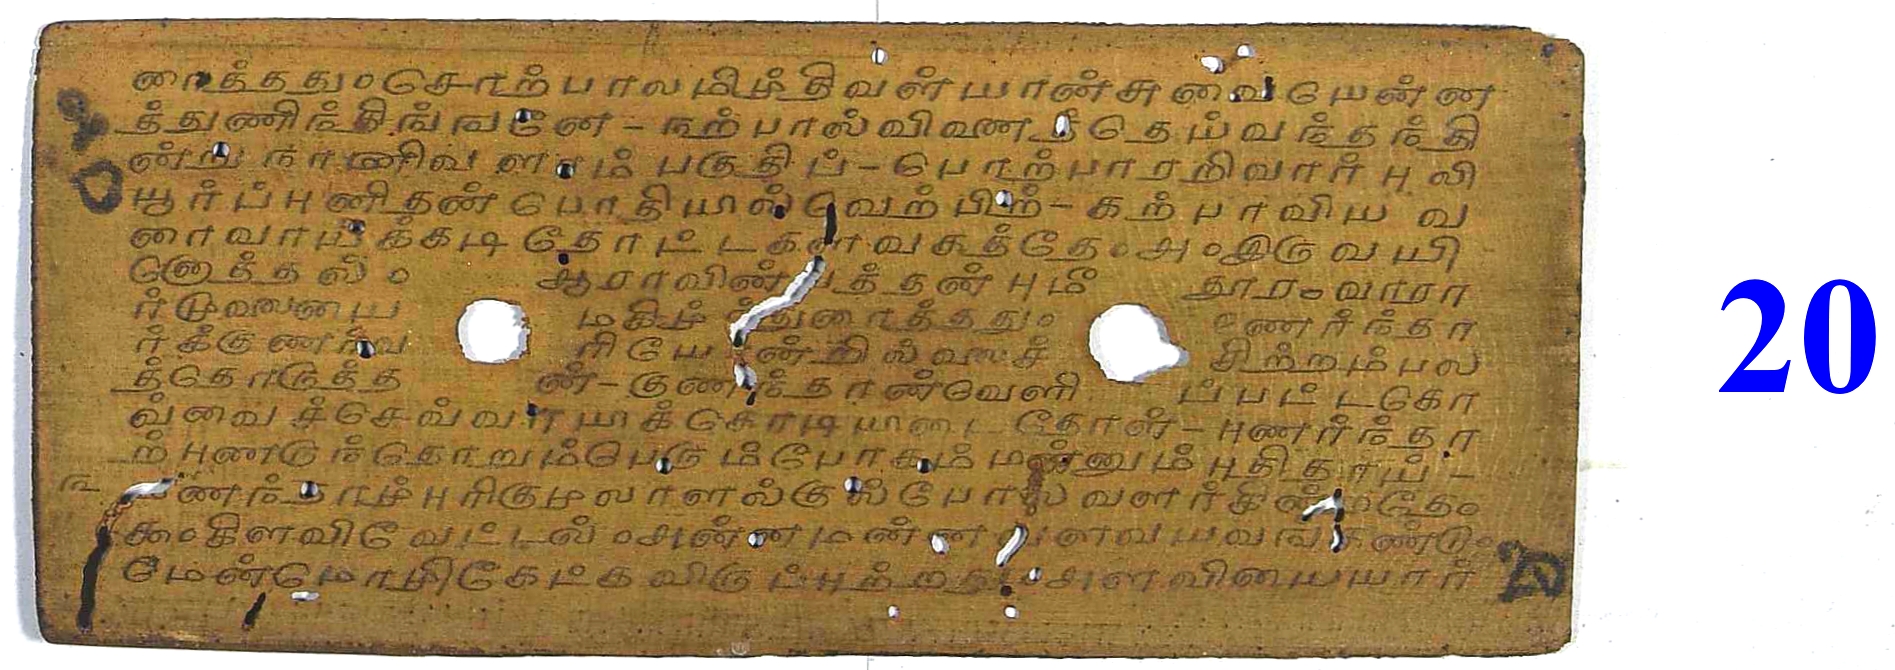 னைத்தது௦சொற்பாலமிழ்திவள்யான்சுவையென்ன
த்துணிந்திங்ஙனே-நற்பால்வினைத்தெய்வந்தந்தி
ன்று நானிவளாம் பகுதிப்-பொற்பாரறிவார் புலி
யூர்ப்புனிதன் பொதியில்வெற்பிற்-கற்பாவிய வ
ரைவாய்க்கடி தோட்டகளவகத்தே௦அ௦இருவயி
னொத்தல்௦ ஆராவின்பத்தன்பு மீ தூர௦வாரா
ர்முலையை மகிழ்ந்துரைத்தது௦ உணர்ந்தா
ர்க்குணர்வ ரியோன்றில்லைச் சிற்றம்பல
த்தொருத்த ன்-குணந்தான்வெளி ப்பட்டகொ
வ்வைச்செவ்வாயிக்கொடியிடை தோள்-புணர்ந்தா
ற்புணருந்தொறும்பெரும்போகம் மன்னும் புதிதாய்-
மணந்தாழ்புரிகுழலாளல்குல்போல வளர்கின்றதே௦
௯௦கிளவிவேட்டல்௦அன்னமன்னவளவயவங்கண்டு௦
மென்மொழிகேட்க விருப்புற்றது௦அளவியையார்
20